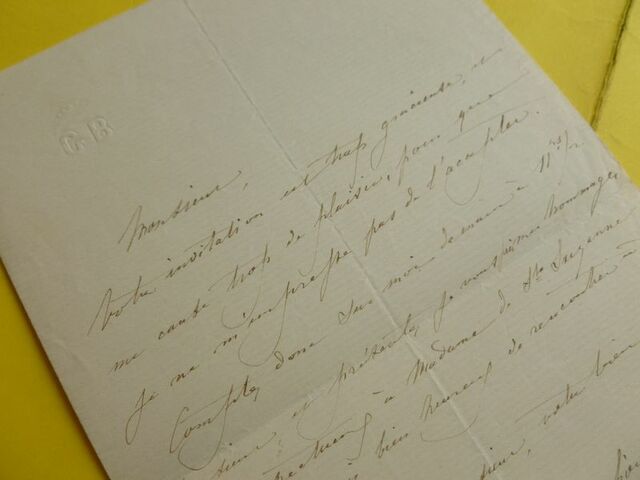 C. B
Monsieur,
Votre invitation est trop gracieuse, et
me cause trop de plaisir, pour que
je ne m'empresse pas de l'accepter.
Comptez donc sur moi demain à 11h 1/2
et présentez, je vous prie mes hommages
à Madame de Ste Suzanne
bien heureux de rencontrer à
votre bien